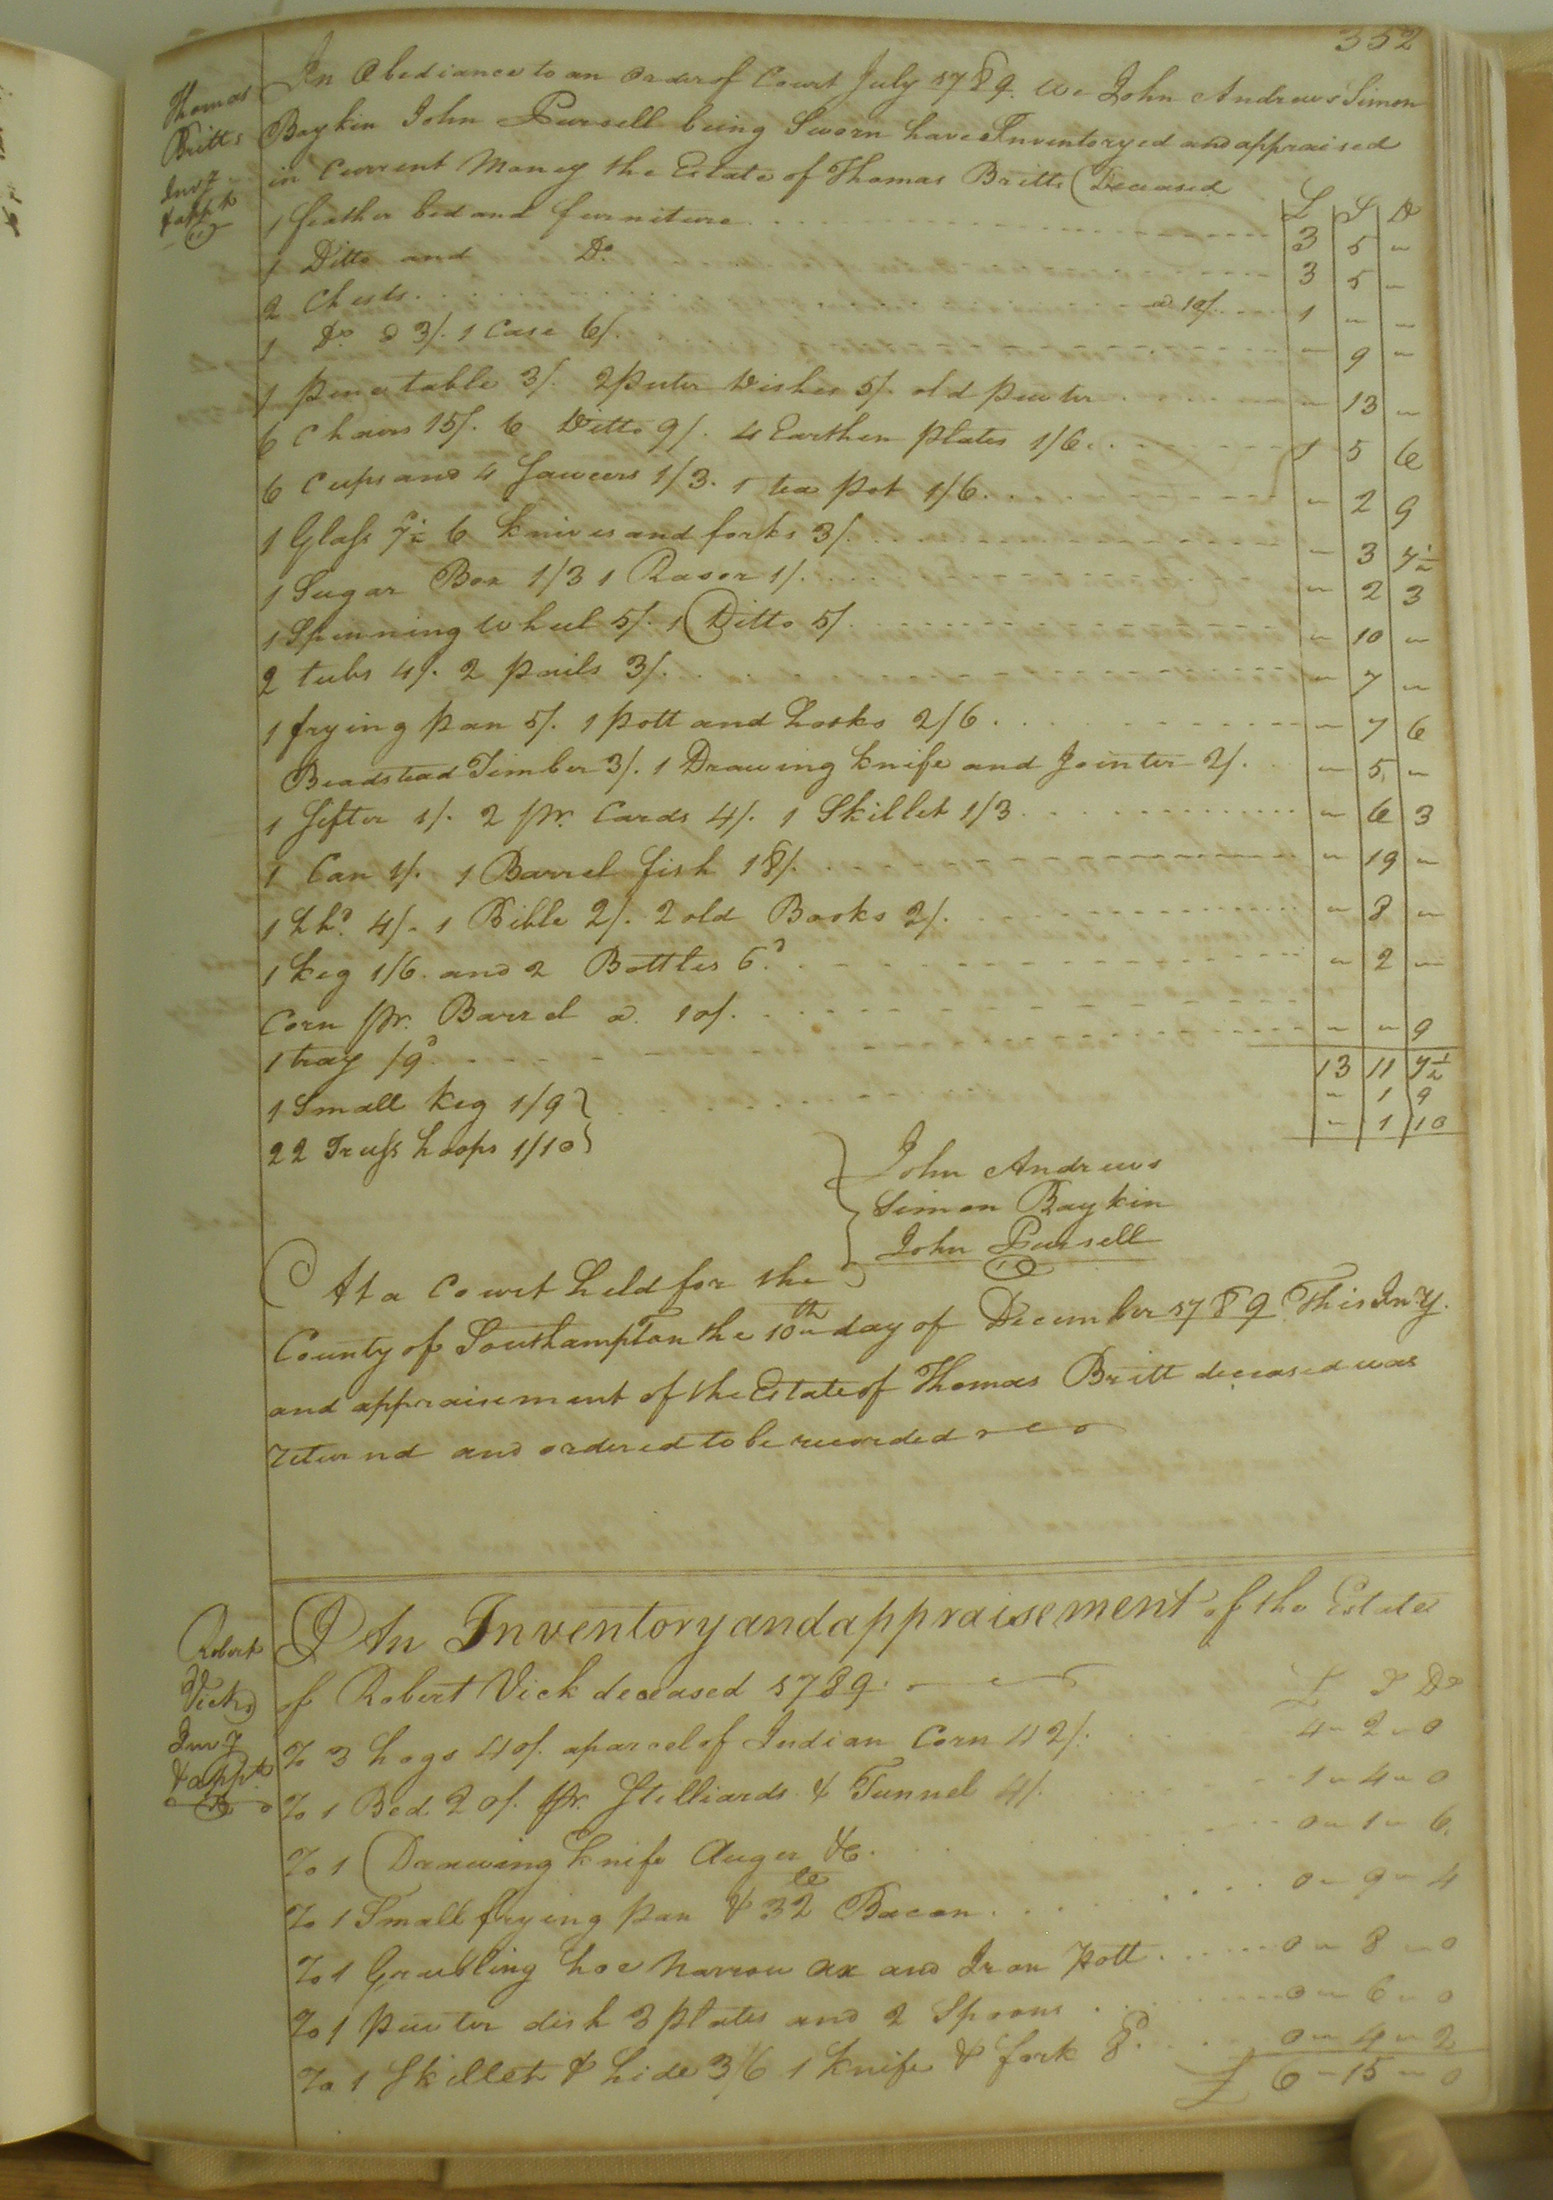 352
Thomas
Britts
Inv.y
& app.t
In Obediance to an order of Court July 1789. We John Andrews Simon
Boykin John Pursell being Sworn have Inventoryed and appraised
in Current Money the Estate of Thomas Britts Deceased
£ S D
1 feather bed and furniture 3 5 "
1 Ditto and Do. 3 5 "
2 Chests a 10/. 1 " "
1 Do. a 3/. 1 Case 6/. " 9 "
1 pine table 3/. 2 Puter Dishes 5/. old pewter " 13 "
6 Chairs 15/. 6 Ditto 9/. 4 Earthen plates 1/6. 1 5 6
6 Cups and 4 Sawcers 1/3. 1 tea pot 1/6. " 2 9
1 Glass 7½ 6 knives and forks 3/. " 3 7½
1 Sugar Box 1/3 1 Rasor 1/. " 2 3
1 Spinning Wheel 5/. 1 Ditto 5/. " 10 "
2 tubs 4/. 2 pails 3/. " 7 "
1 frying pan 5/. 1 pott and hooks 2/6. " 7 6
Beadstead Timber 3/. 1 Drawing knife and Jointer 2/. " 5 "
1 Sifter 1/. 2 pr. Cards 4/. 1 Skillet 1/3 " 6 3
1 Can 1/. 1 Barrel fish 18/. " 19 "
1 hhd. 4/. 1 Bible 2/. 2 old Books 2/. " 8 "
1 keg 1/6. and 2 Bottles 6d. " 2 "
Corn pr. Barrel a. 10/.
1 tray /9d. " " 9
13 11 7½
1 Small keg 1/9 " 1 9
22 Truss hoops 1/10 " 1 10
John Andrews
Simon Boykin
John Pursell
At a Court held for the
County of Southampton the 10th day of December 1789. This Inv.y.
and appraisement of the Estate of Thomas Britt deceased was
returnd and ordered to be recorded
Robert
Vicks
Inv.y
& app.t
An Inventory and appraisement of the Estate
of Robert Vick deceased 1789.
£ S D
To 3 hogs 40/. a parcel of Indian Corn 42/. 4 " 2 " 0
To 1 Bed 20/. pr. Stilliards & Funnel 4/. 1 " 4 " 0
To 1 Drawing knife Auger &c. 0 " 1 " 6.
To 1 Small frying pan & 32 le Bacon 0 " 9 " 4
To 1 Grubling hoe narrow ax and Iron Pott 0 " 8 " 0
To 1 pewter dish 3 plates and 2 Spoons 0 " 6 " 0
To 1 Skillet & hide 3/6 1 knife & fork 8d. 0 " 4 " 2
£ 6 " 15 " 0